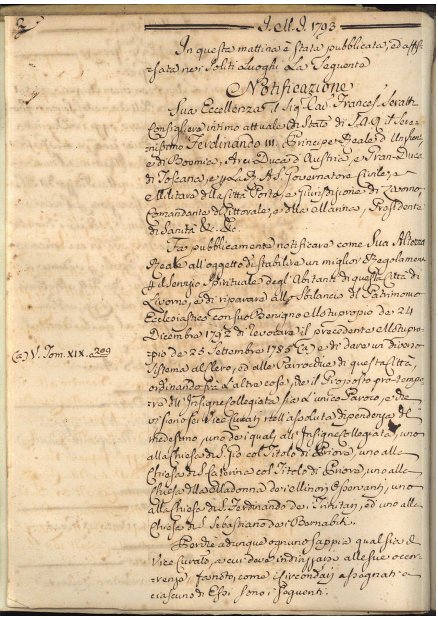 2
I. M. I. 1793
In questa mattina è stata pubblicata, ed affis-
sata nei soliti Luoghi La seguente
Notificazione
Sua Eccellenza il Sig. Cav. Frances. Seratti
Consigliere intimo attuale di Stato di S.A.R. il Sere-
nissimo Ferdinando III. Principe Reale d'Ungheria,
e di Boemia, Arci-Duca d'Austria, e Gran-Duca
di Toscana, e p. La R. A. S. Governatore Civile, e
Militare della Città Porto, e Giurisdizione di Livorno,
Comandante del Littorale, e della Marina, Presidente
di Sanità &c. &c.
Fa pubblicamente notificare come Sua Altezza
Reale all'oggetto di stabilire un miglior Regolamento
p. il servizio spirituale degl'Abitanti di questa Città di
Livorno, e di riparare allo sbilancio del Patrimonio
Ecclesiastico con suo Benigno Motuproprio de 24
Dicembre 1792 di revocare il precedente Motupro-
prio de 25 Settembre 1785 (a) e di dare un diverso
(a) V. Tom. XIX. c. 209
sistema al Clero, ed alle Parrocchie di questa Città,
ordinando fra L'altre cose, che il Proposto pro-tempo-
re dell'Insigne Collegiata sia L'unico Paroco, e che
vi siano sei Vice Curati nell'assoluta dipendenza del
medesimo, uno de i quali all'Insigne Collegiata, uno
alla Chiesa di S. col Titolo di Priore, uno alla
Chiesa di S. Caterina col Titolo di Priore, uno alla
Chiesa della Madonna de i Minori Osservanti, uno
alla Chiesa di S. Ferdinando de Trinitari, ed uno alla
Chiesa di S. Sebastiano de i Bernabiti.
Perchè adunque ognuno sappia qual sia il
Vice Curato, a cui deve indirizzarsi alle sue occor-
renze, fa noto, come i Circondarj assegnati a
ciascuno di Essi sono i seguenti.